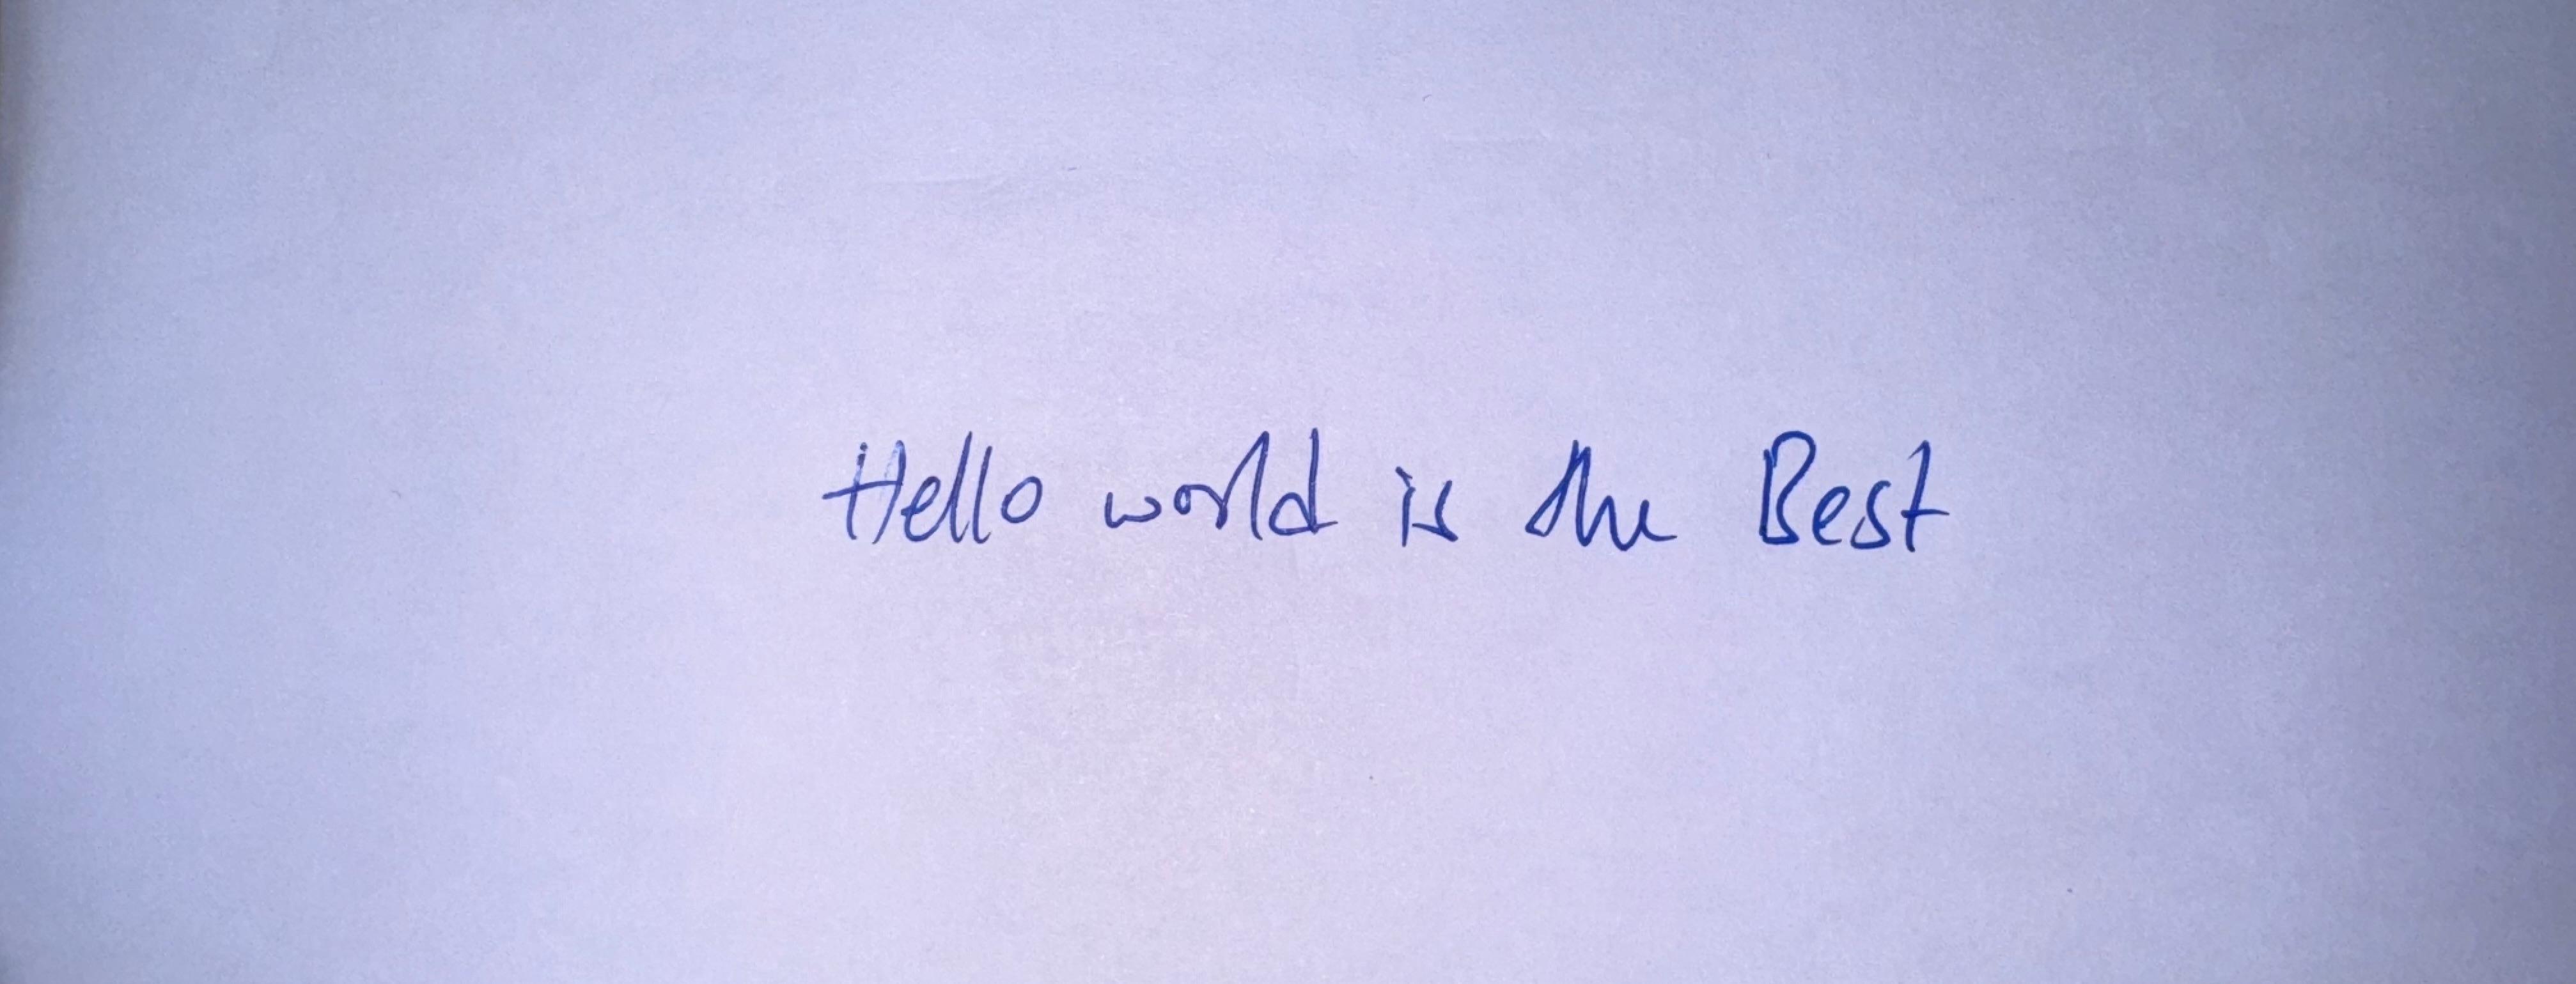 Hello world is the Best